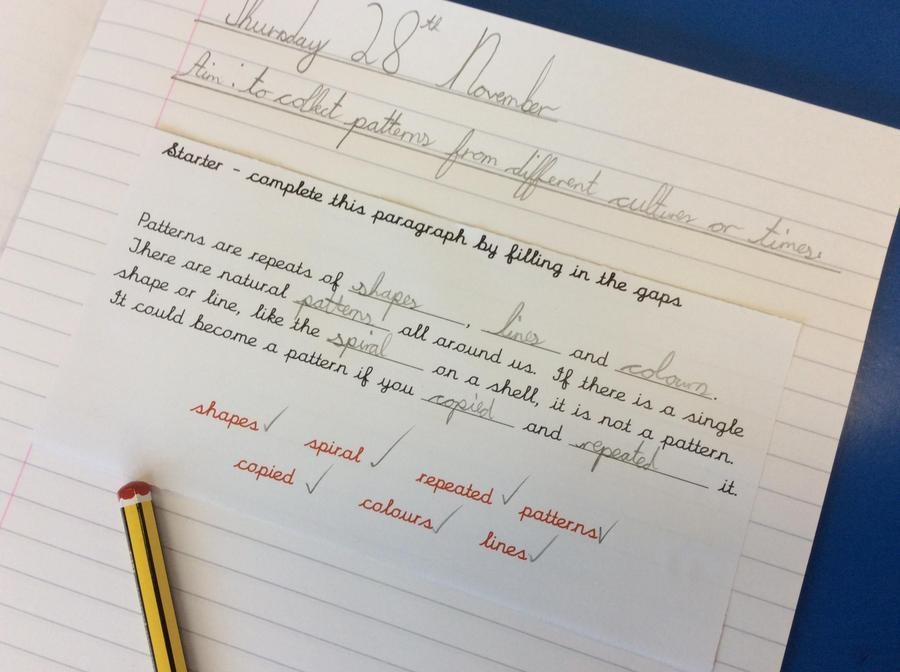 Thursday 28th November
Aim: to collect patterns from different cultures or times.
Starter - complete this paragraph by filling in the gaps
Patterns are repeats of shapes, lines and colours.
There are natural patterns all around us. If there is a single
shape or line, like the spiral on a shell, it is not a pattern.
It could become a pattern if you copied and repeated it.
shapes ✓ spiral ✓ repeated ✓ patterns ✓
copied ✓ colours ✓ lines ✓